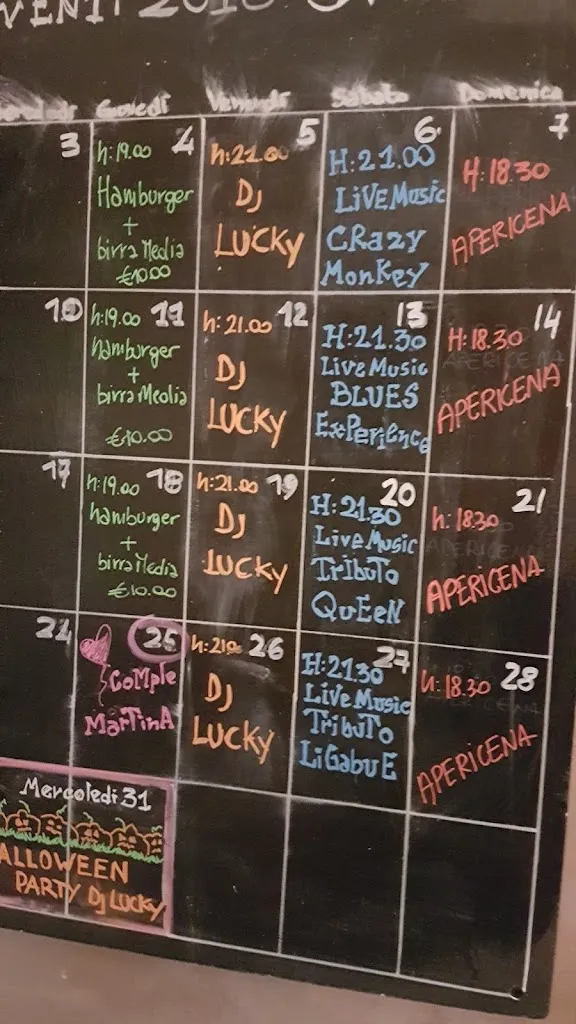 VENTI 2018
Giovedì Venerdì Sabato Domenica
3
4
h:19.00
Hamburger
+
birra Media
€10.00
5
h:21.00
DJ
LUCKY
6
H:21.00
LIVE Music
CRazy
MonKey
7
H:18.30
APERICENA
10
11
h:19.00
hamburger
+
birra Media
€10.00
12
h:21.00
DJ
LUCKY
13
H:21.30
Live Music
BLUES
ExPerience
14
H:18.30
APERICENA
17
18
h:19.00
hamburger
+
birra Media
€10.00
19
h:21.00
DJ
LUCKY
20
H:21.30
Live Music
TribuTo
QuEEN
21
h:18.30
APERICENA
24
25
CoMPle
MARTINA
26
h:21.0
DJ
LUCKY
27
H:21.30
LIVE Music
TribuTo
LiGabuE
28
h:18.30
APERICENA
Mercoledì 31
ALLOWEEN
PARTY DJ LUCKY